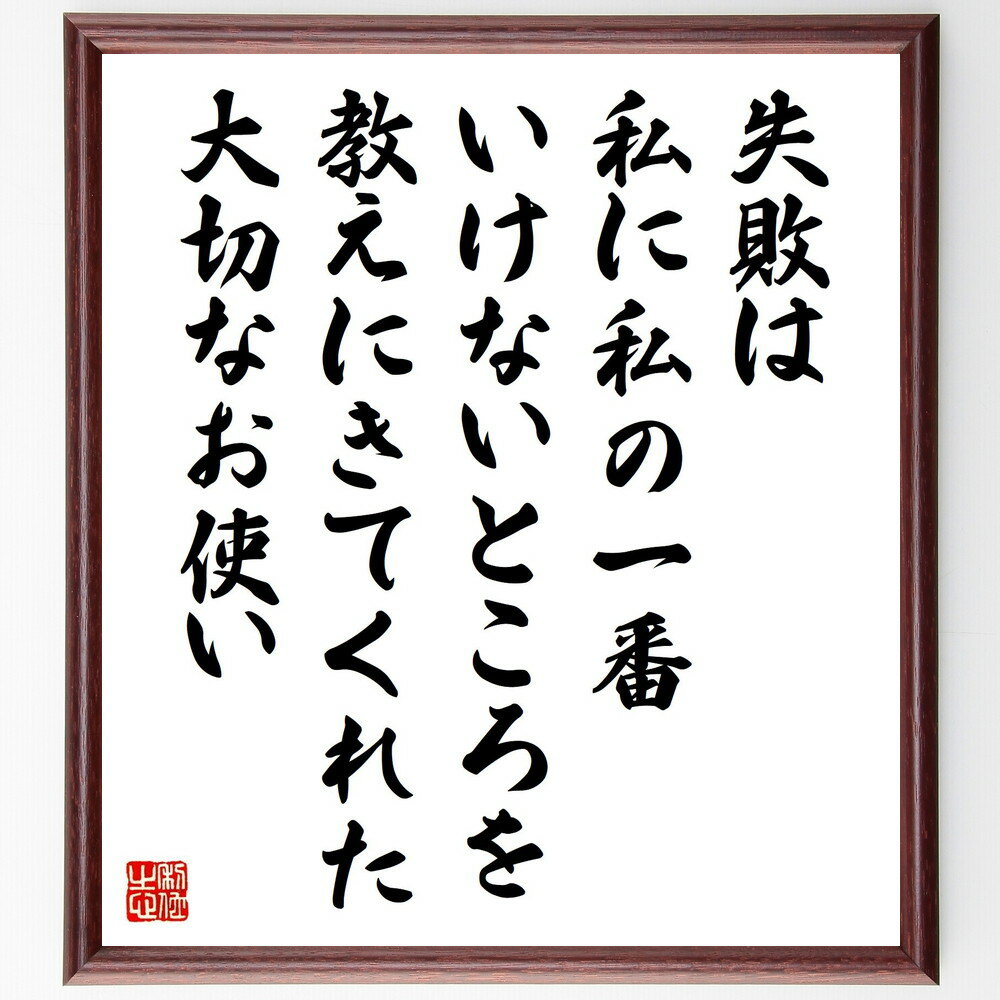 失敗は
私に私の一番
いけないところを
教えにきてくれた
大切なお使い